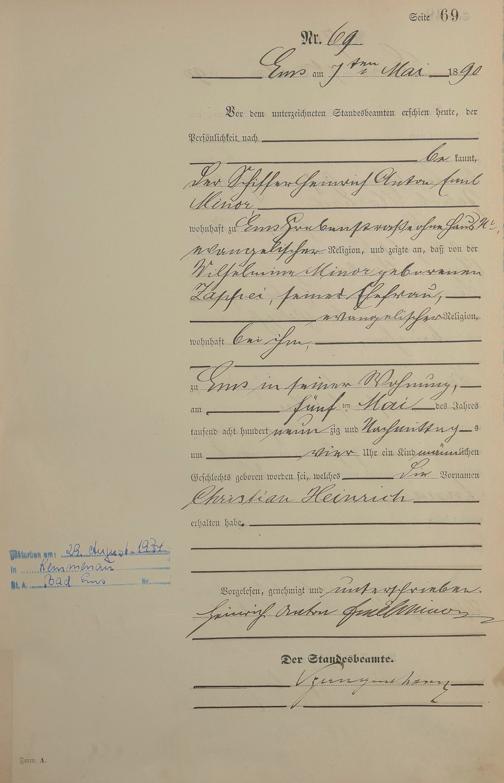 Seite 69
Nr. 69
Ems am 7ten Mai 1890
Vor dem unterzeichneten Standesbeamten erschien heute, der
Persönlichkeit nach
be kannt,
der Schiffer Heinrich Anton Emil
Minor
wohnhaft zu Ems Grabenstraße ohne Haus Nr.,
evangelischer Religion, und zeigte an, daß von der
Wilhelmine Minor geborenen
seiner Ehefrau,
evangelischer Religion,
wohnhaft bei ihm,
zu Ems in seiner Wohnung,
am fünften Mai des Jahres
tausend acht hundert neunzig und Nachmittags
um vier Uhr ein Kind männlichen
Geschlechts geboren worden sei, welches die Vornamen
Christian Heinrich
erhalten habe.
Vorgelesen, genehmigt und unterschrieben.
Heinrich Anton Emil Minor
Der Standesbeamte.
Gestorben am: 29. August 1971
in Kemmenau
St. A. Bad Ems Nr.
Form. A.